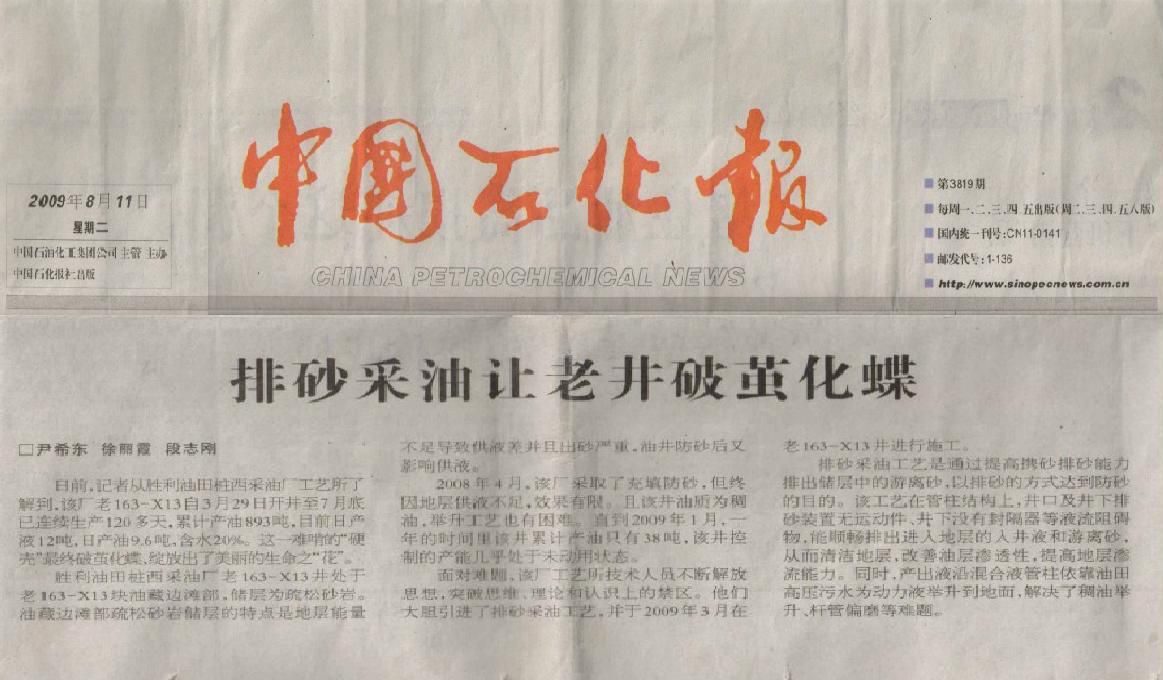 中国石化报
CHINA PETROCHEMICAL NEWS
2009年8月11日
星期二
中国石油化工集团公司 主管 主办
中国石化报社出版
第3819期
每周一、二、三、四、五出版(周二、三、四、五八版)
国内统一刊号:CN11-0141
邮发代号:1-136
http://www.sinopecnews.com.cn
排砂采油让老井破茧化蝶
□尹希东 徐丽霞 段志刚
日前,记者从胜利油田桩西采油厂工艺所了
解到,该厂老163-X13自3月29日开井至7月底
已连续生产120多天,累计产油893吨,目前日产
液12吨,日产油9.6吨,含水20%。这一难啃的“硬
壳”最终破茧化蝶,绽放出了美丽的生命之“花”。
胜利油田桩西采油厂老163-X13井处于
老163-X13块油藏边滩部,储层为疏松砂岩。
油藏边滩部疏松砂岩储层的特点是地层能量
不足导致供液差并且出砂严重,油井防砂后又
影响供液。
2008年4月,该厂采取了充填防砂,但终
因地层供液不足,效果有限。且该井油质为稠
油,举升工艺也有困难。直到2009年1月,一
年的时间里该井累计产油只有38吨,该井控
制的产能几乎处于未动用状态。
面对难题,该厂工艺所技术人员不断解放
思想,突破思维、理论和认识上的禁区。他们
大胆引进了排砂采油工艺,并于2009年3月在
老163-X13井进行施工。
排砂采油工艺是通过提高携砂排砂能力
排出储层中的游离砂,以排砂的方式达到防砂
的目的。该工艺在管柱结构上,井口及井下排
砂装置无运动件、井下没有封隔器等液流阻碍
物,能顺畅排出进入地层的入井液和游离砂,
从而清洁地层,改善油层渗透性,提高地层渗
流能力。同时,产出液沿混合液管柱依靠油田
高压污水为动力液举升到地面,解决了稠油举
升、杆管偏磨等难题。